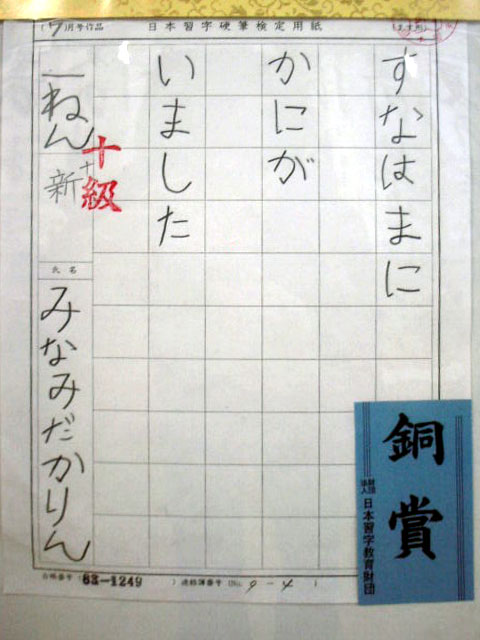 (7)月号作品 日本習字硬筆検定用紙
すなはまに
かにが
いました
一ねん
新
十級
氏名
みなみだかりん
台帳番号(63-1249 )連絡簿番号(No. 9-4 )
銅賞
財団法人 日本習字教育財団